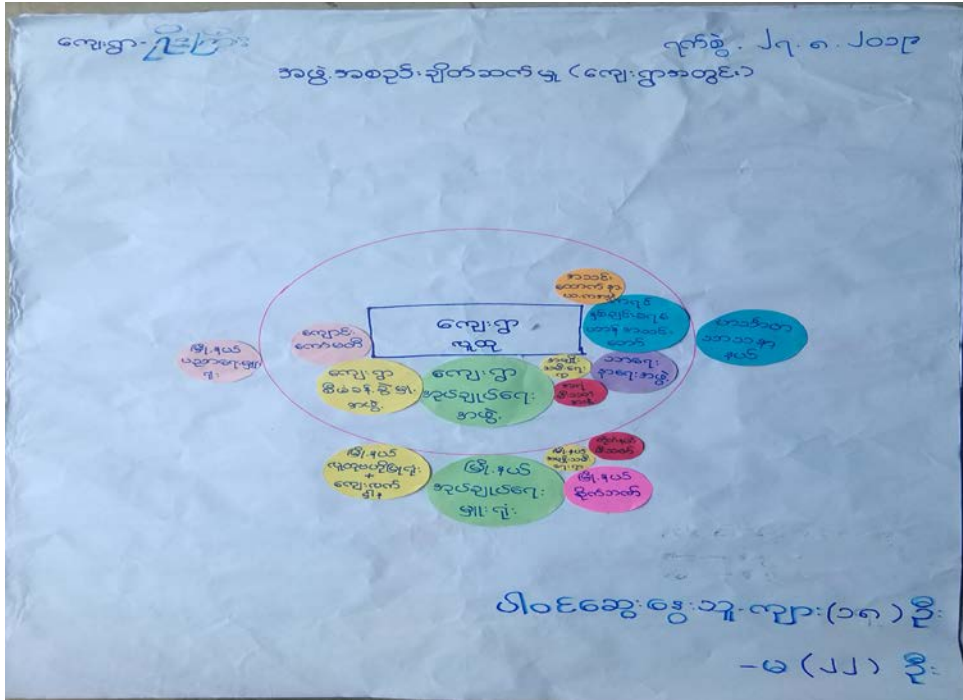 ကျေးရွာ-ဦးကြား
ရက်စွဲ . ၂၇.၈.၂၀၁၉
အဖွဲ့အစည်းချိတ်ဆက်မှု (ကျေးရွာအတွင်း)
ကျေးရွာ
လူထု
ကျောင်း
ကော်မတီ
မြို့နယ်
ပညာရေးမှူး
ရုံး
ကျေးရွာ
စီမံခန့်ခွဲမှု
အဖွဲ့
ကျေးရွာ
အုပ်ချုပ်ရေး
အဖွဲ့
သာရေး
နာရေးအဖွဲ့
ဟင်္သာတ
သာသနာ
နယ်
မြို့နယ်
+
ကျေးလက်
မြို့နယ်
အုပ်ချုပ်ရေး
မှူးရုံး
မြို့နယ်
စိုက်ဘဏ်
ပါဝင်ဆွေးနွေးသူ-ကျား(၁၈) ဦး
-မ (၂၂) ဦး